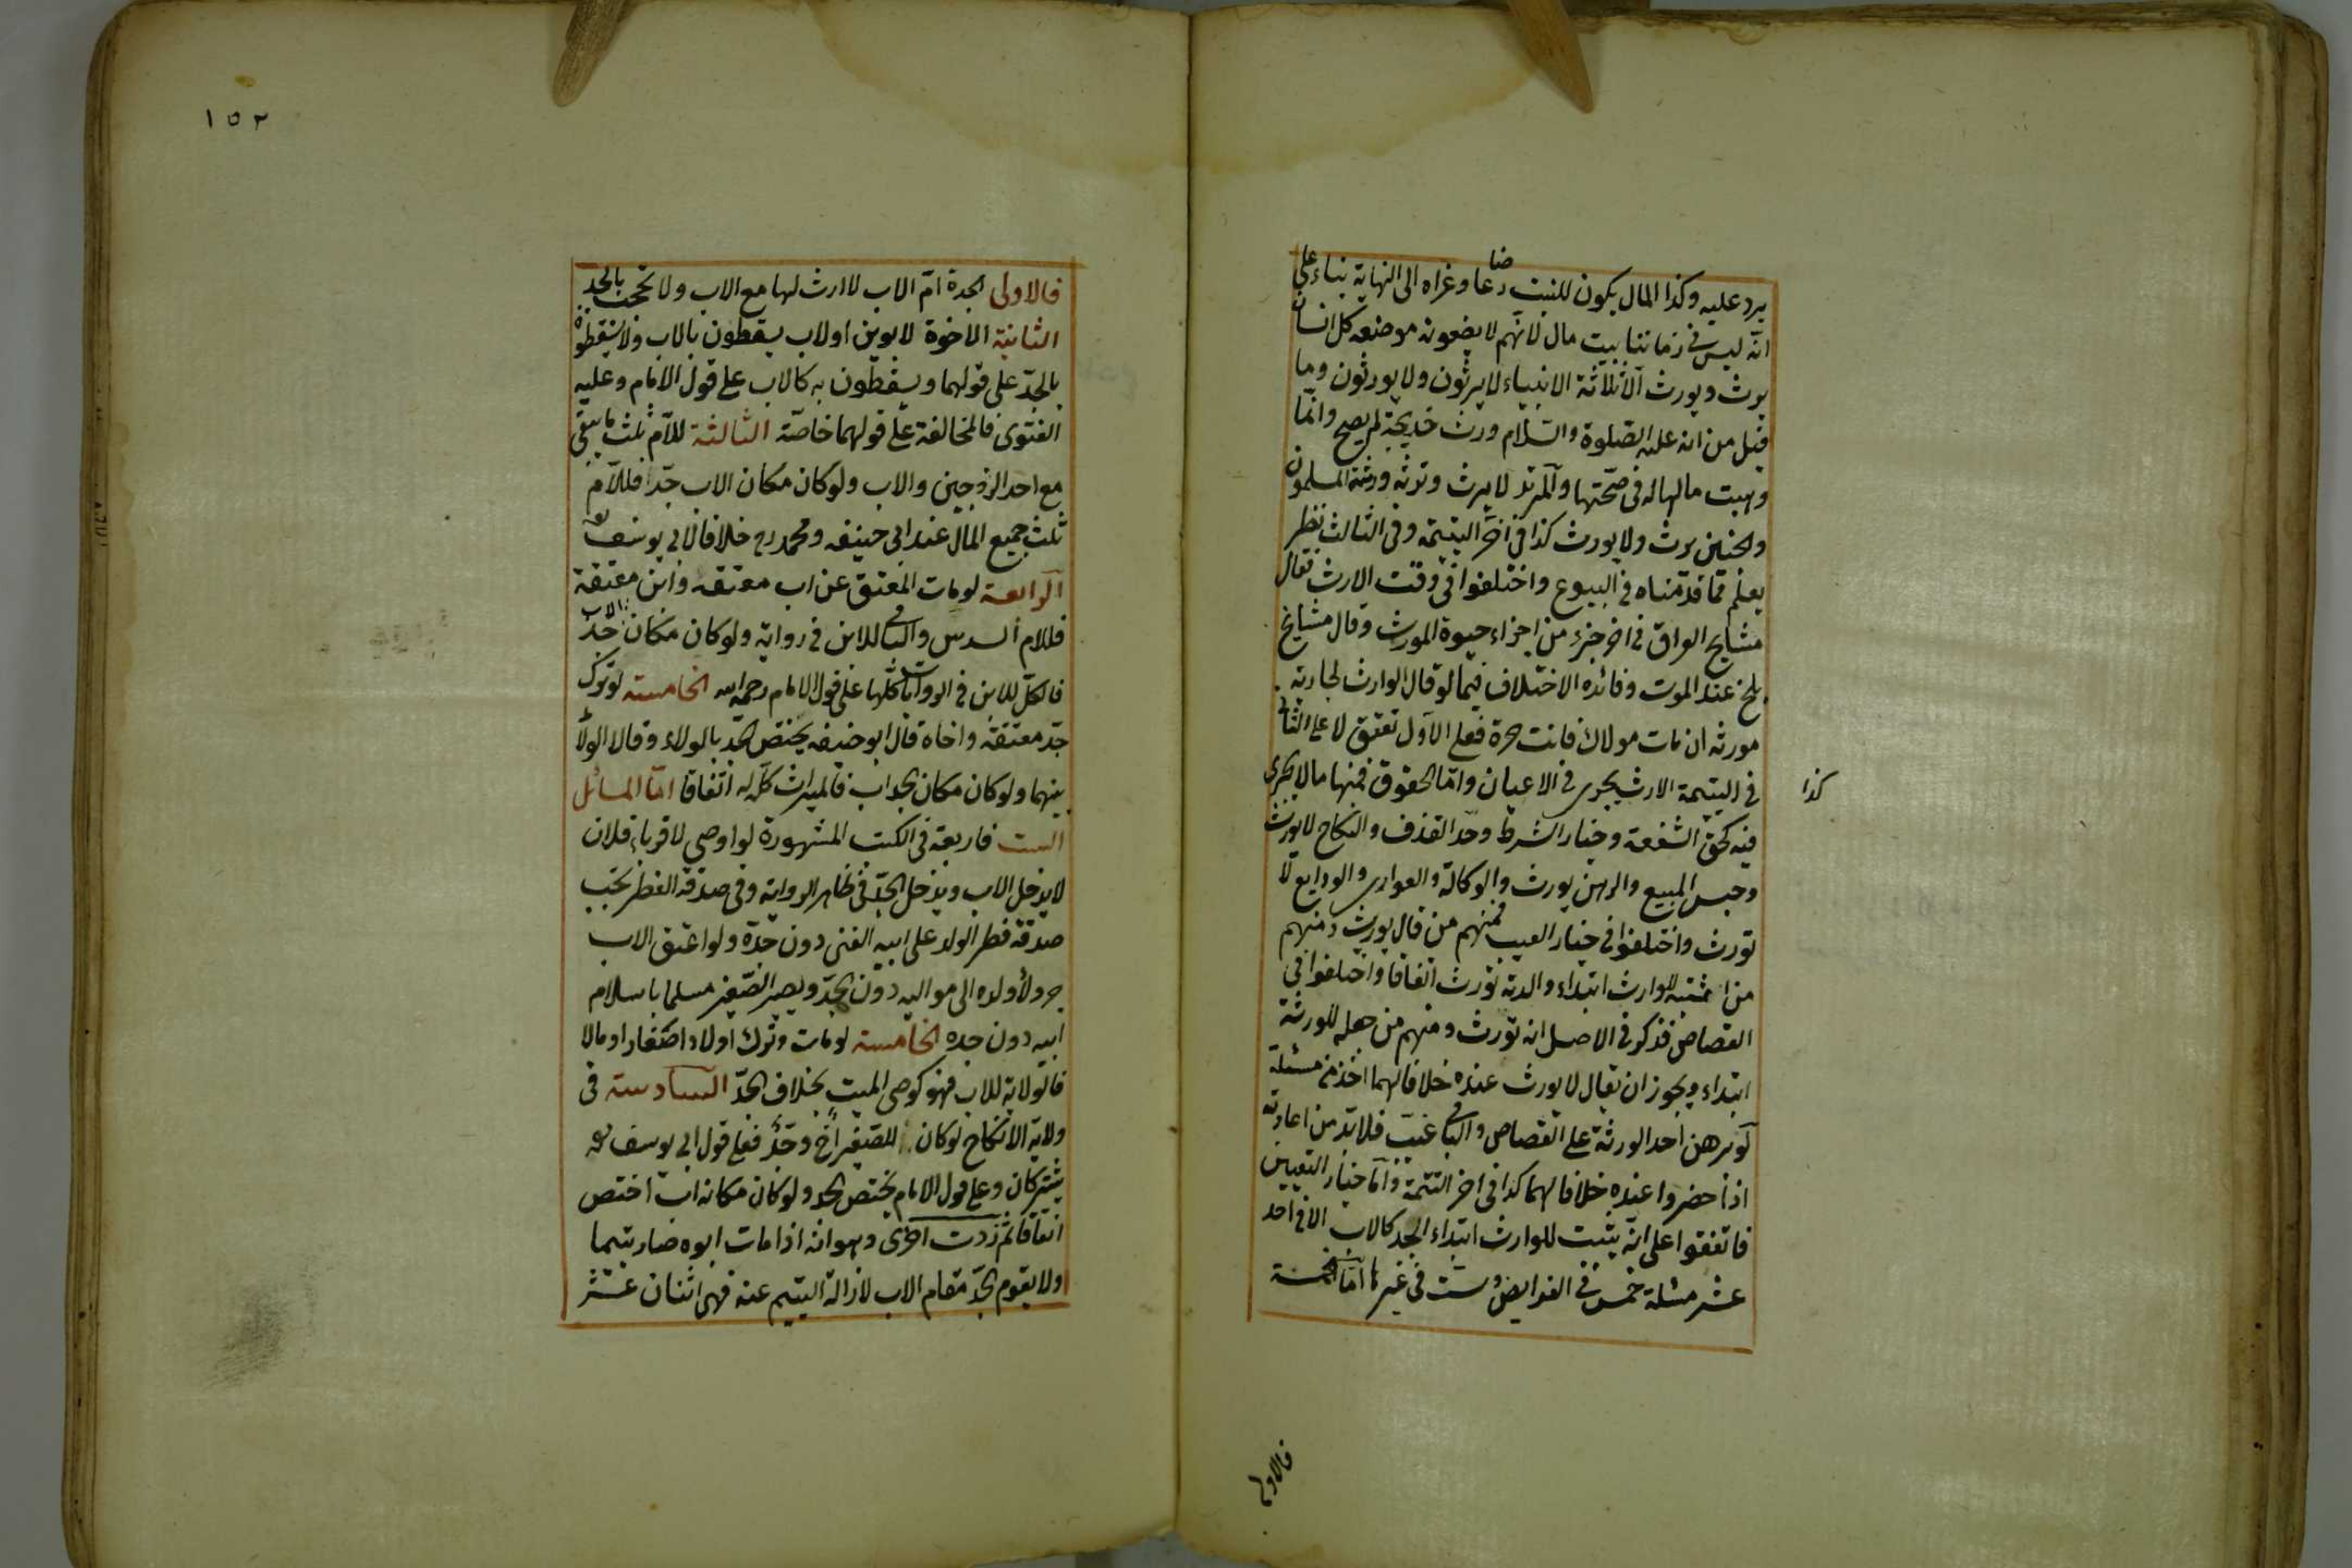 يرد عليه وكذا المال يكون للبنت رضاعا وعزاه الى النهاية بناء على
انه ليس في زماننا بيت مال لانهم لا يضعونه موضعه كل انسان
يرث ويورث الا ثلاثة الانبياء لا يرثون ولا يورثون وما
قيل من انه عليه الصلوة والسلام ورث خديجة لم يصح وانما
وهبت مالها له في صحتها والمرتد لا يرث وترثه ورثته المسلمون
والجنين يرث ولا يورث كذا في آخر اليتيمة وفي الثالث نظر
يعلم مما قدمناه في البيوع واختلفوا في وقت الارث فقال
مشايخ العراق في اخر جزء من اجزاء حيوة المورث وقال مشايخ
بلخ عند الموت وفائدة الاختلاف فيما لو قال الوارث لجارية
مورثه ان مات مولاك فانت حرة فعلى الاول تعتق لا على الثاني
كذا
في اليتيمة الارث يجري في الاعيان واما الحقوق فمنها ما لا يجري
فيه كحق الشفعة وخيار الشرط وحد القذف والنكاح لا يورث
وحبس المبيع والرهن يورث والوكالة والعواري والودايع لا
تورث واختلفوا في خيار العيب فمنهم من قال يورث ومنهم
من اثبته للوارث ابتداء والدية تورث اتفاقا واختلفوا في
القصاص فذكر في الاصل انه تورث ومنهم من جعله للورثة
ابتداء ويجوز ان يقال لا يورث عنده خلافا لهما اخذ من مسئلة
لو برهن احد الورثة على القصاص والباقي غيب فلا بد من اعادته
اذا حضروا عنده خلافا لهما كذا في اخر اليتيمة واما خيار التعيين
فاتفقوا على انه يثبت للوارث ابتداء الجد كالاب الا في احد
عشر مسئلة خمس في الفرايض وست في غيرها اما الخمسة
فالاولى
١٥٢
فالاولى الجدة ام الاب لا ارث لها مع الاب ولا تحجب بالجد
الثانية الاخوة لابوين او لاب يسقطون بالاب ولا يسقطون
بالجد على قولهما ويسقطون به كالاب على قول الامام وعليه
الفتوى فالمخالفة على قولهما خاصة الثالثة للام ثلث ما يبقى
مع احد الزوجين والاب ولو كان مكان الاب جدا فللام
ثلث جميع المال عند ابي حنيفه ومحمد رح خلافا لابي يوسف
الرابعة لو مات المعتق عن اب معتقه وابن معتقه
فللام السدس والباقي للابن في رواية ولو كان مكان الاب جد
فالكل للابن في الروايات كلها على قول الامام رحمه الله الخامسة لو ترك
جد معتقه واخاه قال ابو حنيفه يختص الجد بالولاء وقالا الولاء
بينهما ولو كان مكان الجد اب فالميراث كله له اتفاقا اما المسائل
الست فاربعة في الكتب المشهورة لو اوصى لاقرباء فلان
لا يدخل الاب ويدخل الجد في ظاهر الرواية وفي صدقة الفطر تجب
صدقة فطر الولد على ابيه الغني دون جده ولو اعتق الاب
جر ولاء ولده الى مواليه دون الجد ويصير الصغير مسلما باسلام
ابيه دون جده الخامسة لو مات وترك اولادا صغارا ومالا
فالولاية للاب فهو كوصي الميت بخلاف الجد السادسة في
ولاية الانكاح لو كان للصغير اخ وجد فعلى قول ابي يوسف
يشتركان وعلى قول الامام يختص الجد ولو كان مكانه اب اختص
اتفاقا ثم زدت اخرى وهو انه اذا مات ابوه صار يتيما
ولا يقوم الجد مقام الاب لازالة اليتيم عنه فهي اثنان عشر